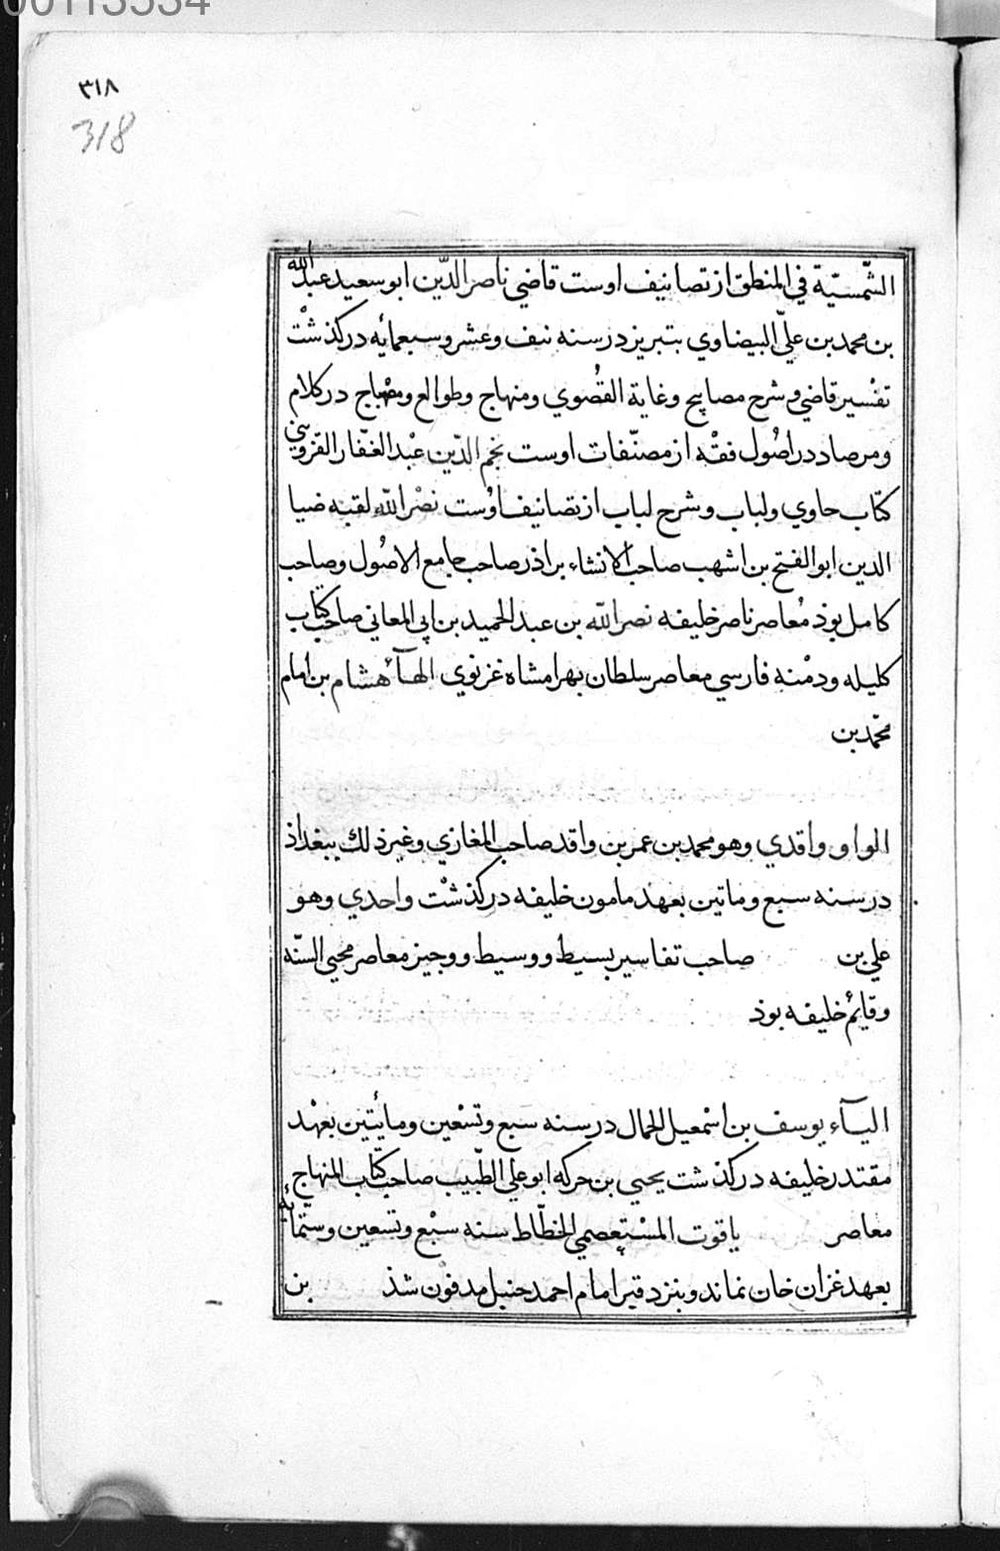 00113534
٣١٨
318
الشّمسيّة في المنطق از تصانيف اوست قاضي ناصر الدّين ابو سعيد عبد الله
بن محمد بن عليّ البيضاوي بتبريز در سنه نيف وعشر وسبعمائه در كذشت
تفسير قاضي و شرح مصابيح وغاية القصوي ومنهاج وطوالع ومصباح در كلام
ومرصاد در اصُول فقه از مصنّفات اوست نجم الدّين عبْد الغفّار القزويني
كتاب حاوي ولباب وشرح لباب از تصانيف اوست نصْر الله لقبه ضيا
الدين ابو الفتح بن اشهب صاحب الانشاء براذر صاحب جامع الاصُول وصاحب
كامل بوذ مُعاصر ناصر خليفه نصر الله بن عبد الحميد بن ابي المعاني صاحب كتاب
كليله ودمْنه فارسي معاصر سلطان بهرامشاه غزنوي الهآء هشام بن امام
محمّد بن
الواو واقدي وهو محمد بن عمر بن واقد صاحب المغازي وغير ذلك ببغداذ
در سنه سبع وماتين بعهد مامون خليفه در كذشت واحدي وهو
علي بن صاحب تفاسير بسيط ووسيط ووجيز معاصر محيي السنّه
وقايم خليفه بوذ
اليآء يوسف بن اسْمعيل الحمال در سنه سبع وتسْعين ومايتين بعهْد
مقتدر خليفه در كذشت يحيي بن حركه ابو علي الطّبيب صاحب كتاب المنهاج
معاصر ياقوت المسْتعصمي الخطّاط سنه سبْع وتسعين وستّمائه
بعهد غزان خان نماند وبنزد قبر امام احمد حنبل مدفون شذ بن